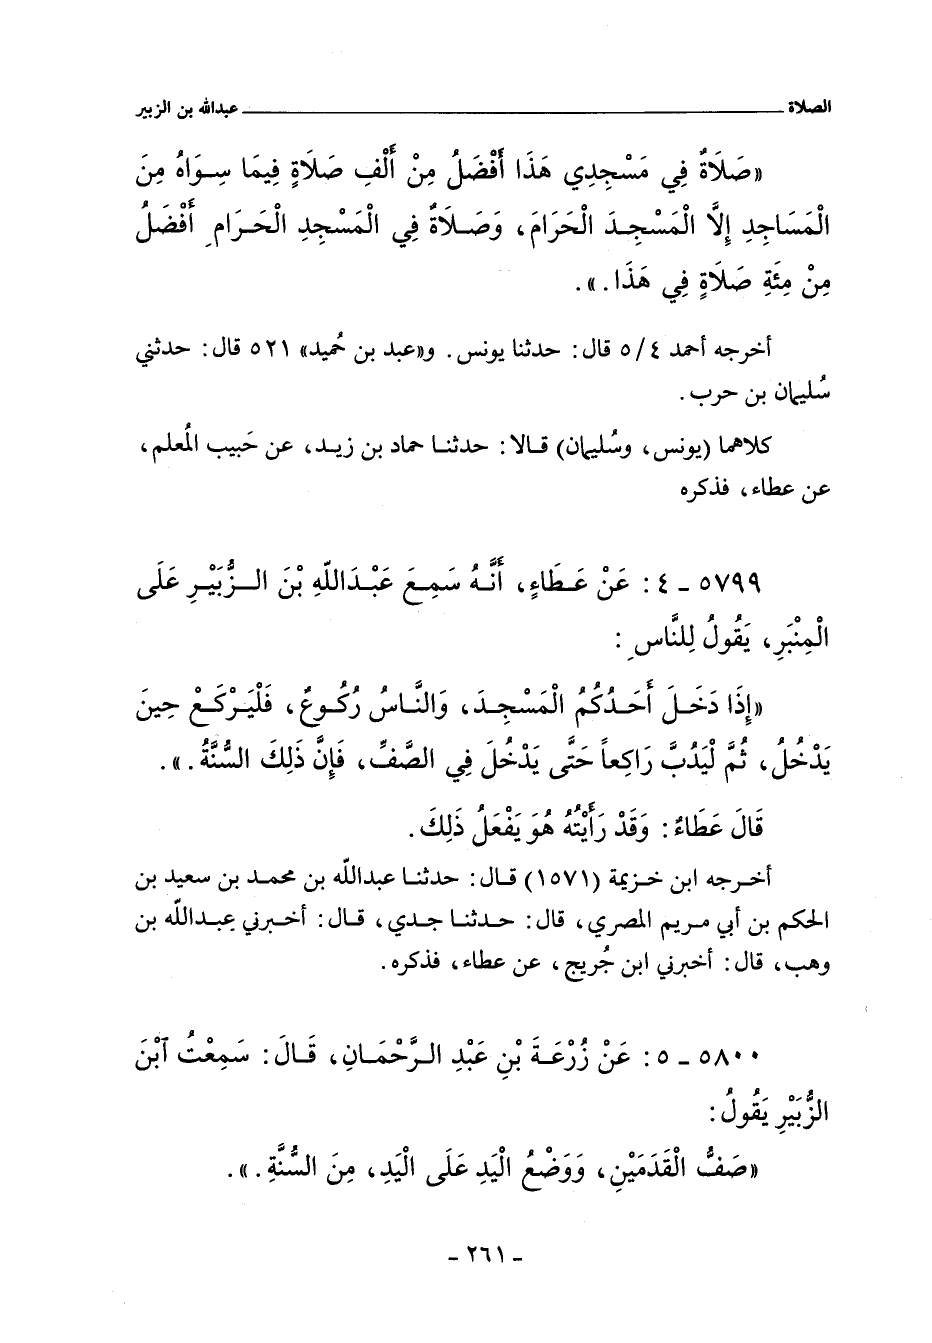 الصلاة عبدالله بن الزبير
«صَلَاةٌ فِي مَسْجِدِي هَذَا أَفْضَلُ مِنْ أَلْفِ صَلَاةٍ فِيمَا سِوَاهُ مِنَ
الْمَسَاجِدِ إِلَّا الْمَسْجِدَ الْحَرَامَ، وَصَلَاةٌ فِي الْمَسْجِدِ الْحَرَامِ أَفْضَلُ
مِنْ مِئَةِ صَلَاةٍ فِي هَذَا.».
أخرجه أحمد ٤/٥ قال: حدثنا يونس. و«عبد بن حُميد» ٥٢١ قال: حدثني
سُليمان بن حرب.
كلاهما (يونس، وسُليمان) قالا: حدثنا حماد بن زيد، عن حَبيب المُعلم،
عن عطاء، فذكره
٥٧٩٩ - ٤: عَنْ عَطَاءٍ، أَنَّهُ سَمِعَ عَبْدَاللهِ بْنَ الزُّبَيْرِ عَلَى
الْمِنْبَرِ، يَقُولُ لِلنَّاسِ:
«إِذَا دَخَلَ أَحَدُكُمُ الْمَسْجِدَ، وَالنَّاسُ رُكُوعٌ، فَلْيَرْكَعْ حِينَ
يَدْخُلُ، ثُمَّ لْيَدُبَّ رَاكِعاً حَتَّى يَدْخُلَ فِي الصَّفِّ، فَإِنَّ ذَلِكَ السُّنَّةُ.».
قَالَ عَطَاءٌ: وَقَدْ رَأَيْتُهُ هُوَ يَفْعَلُ ذَلِكَ.
أخرجه ابن خزيمة (١٥٧١) قال: حدثنا عبدالله بن محمد بن سعيد بن
الحكم بن أبي مريم المصري، قال: حدثنا جدي، قال: أخبرني عبدالله بن
وهب، قال: أخبرني ابن جُريج، عن عطاء، فذكره.
٥٨٠٠ - ٥: عَنْ زُرْعَةَ بْنِ عَبْدِ الرَّحْمَانِ، قَالَ: سَمِعْتُ آبْنَ
الزُّبَيْرِ يَقُولُ:
«صَفُّ الْقَدَمَيْنِ، وَوَضْعُ الْيَدِ عَلَى الْيَدِ، مِنَ السُّنَّةِ.».
- ٢٦١ -